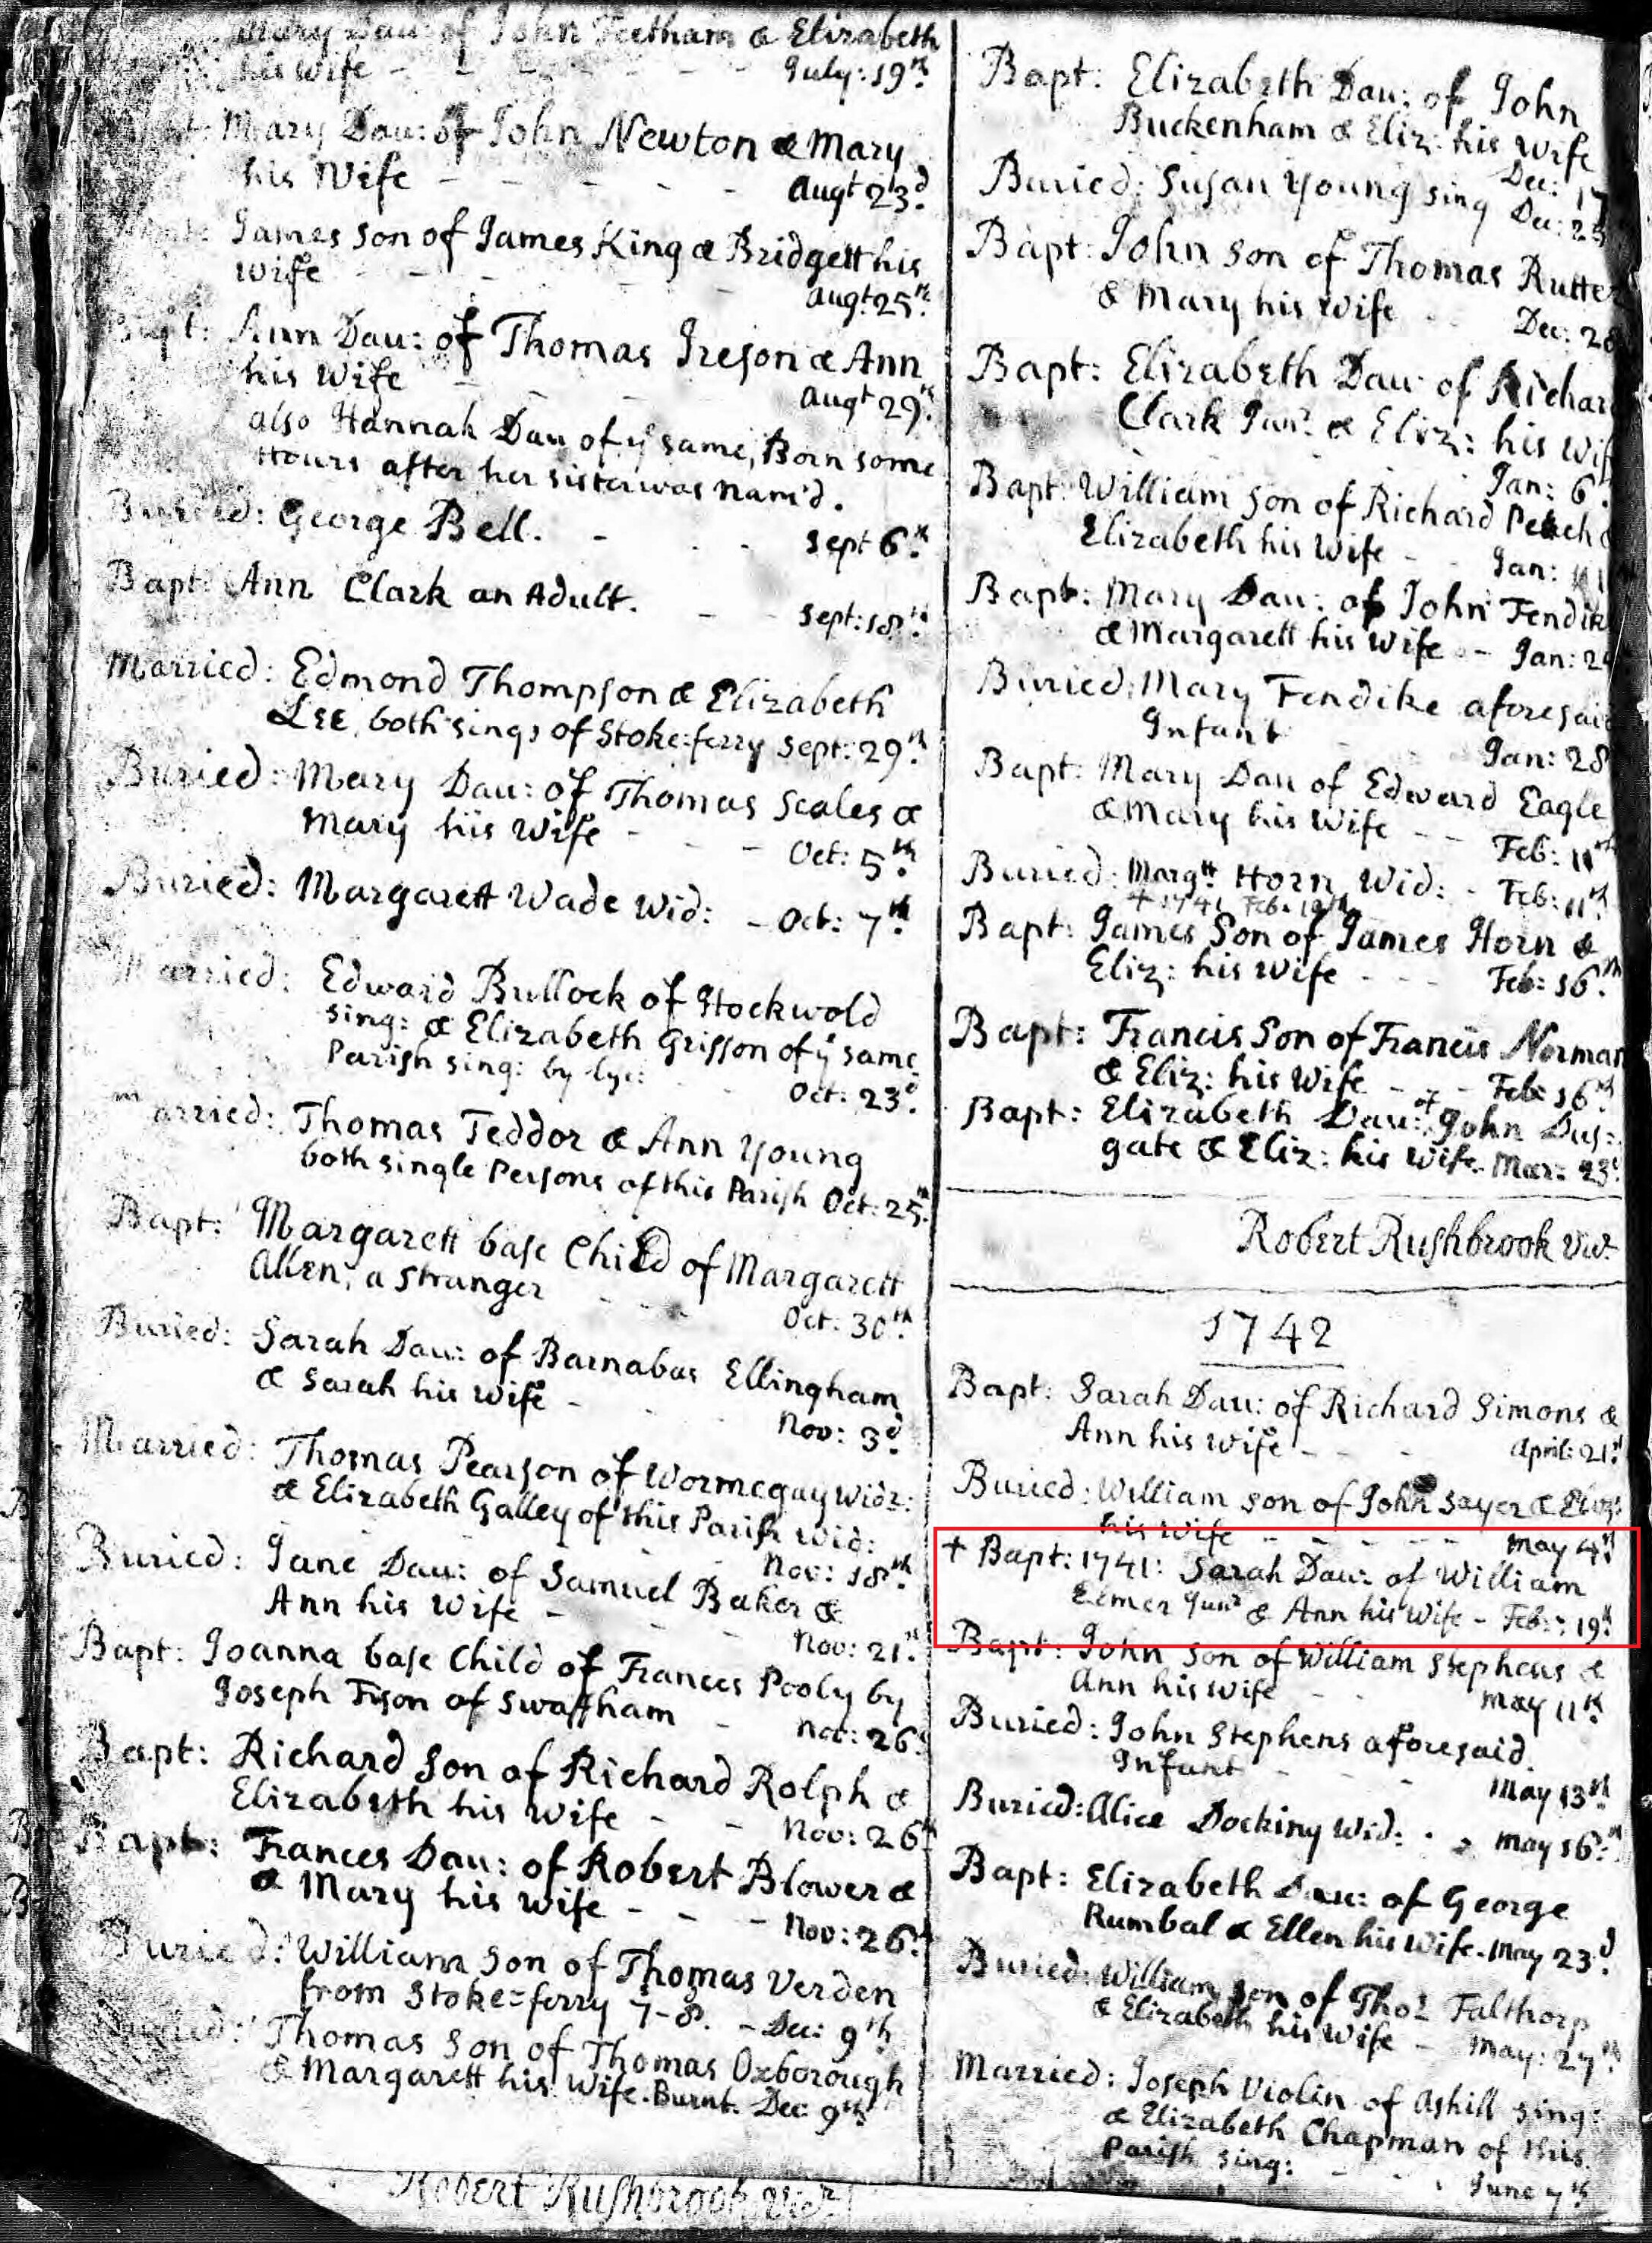 Mary Dau: of John Feetham & Elizabeth
his wife - - - - - - July: 19th
Mary Dau: of John Newton & Mary
his Wife - - - - - Augt 23d
James son of James King & Bridgett his
wife - - - - - Augt: 25th
Bapt: Ann Dau: of Thomas Ireson & Ann
his Wife - - - - Augt 29th
also Hannah Dau of ye same, Born some
Hours after her sister was nam'd.
Buried: George Bell. - - - Sept 6th
Bapt: Ann Clark an Adult. - - Sept: 18th
Married: Edmond Thompson & Elizabeth
Lee, both sings of Stoke=ferry Sept: 29th
Buried: Mary Dau: of Thomas Scales &
Mary his Wife - - - Oct: 5th
Buried: Margarett Wade Wid: - Oct: 7th
Married: Edward Bullock of Hockwold
sing: & Elizabeth Grisson of ye same
Parish sing: by lyc: - - Oct: 23d
Married: Thomas Teddor & Ann Young
both single Persons of this Parish Oct: 25th
Bapt: Margarett base Child of Margarett
Allen, a stranger - - - Oct: 30th
Buried: Sarah Dau: of Barnabas Ellingham
& Sarah his wife - - - Nov: 3d
Married: Thomas Pearson of Wormegay Widr:
& Elizabeth Galley of this Parish Wid:
Nov: 18th
Buried: Jane Dau: of Samuel Baker &
Ann his Wife - - - Nov: 21st
Bapt: Joanna base Child of Frances Pooly by
Joseph Fison of Swaffham - Nov: 26
Bapt: Richard Son of Richard Rolph &
Elizabeth his Wife - - Nov: 26th
Bapt: Frances Dau: of Robert Blower &
& Mary his wife - - - Nov: 26th
Buried: William Son of Thomas Verden
from Stoke=ferry 7-8. - Dec: 9th
Thomas Son of Thomas Oxborough
& Margarett his Wife. Burnt. Dec: 9th
Robert Rushbrook Vicr
Bapt: Elizabeth Dau: of John
Buckenham & Eliz: his Wife
Dec: 17
Buried: Susan Young sing Dec:
Bapt: John Son of Thomas Rutter
& Mary his Wife - - Dec: 28
Bapt: Elizabeth Dau: of Richard
Clark Junr. & Eliz: his Wife
Jan: 6th
Bapt: William Son of Richard Peach &
Elizabeth his Wife - - Jan:
Bapt: Mary Dau: of John Fendike
& Margarett his Wife - - Jan:
Buried: Mary Fendike aforesaid
Infant - - Jan: 28
Bapt: Mary Dau of Edward Eagle
& Mary his Wife - - Feb: 11th
Buried: Margtt Horn Wid: - Feb: 11th
+ 1741 Feb: 19th
Bapt: James Son of James Horn &
Eliz: his Wife - - - Feb: 16th
Bapt: Francis Son of Francis Norman
& Eliz: his Wife - - - Feb: 16th
Bapt: Elizabeth Dau: of John Dus:
gate & Eliz: his Wife. Mar: 23d
Robert Rushbrook Vicr
1742
Bapt: Sarah Dau: of Richard Simons &
Ann his Wife - - - April: 21st
Buried: William Son of John Sayer & Eliz:
his Wife - - - - May 4th
+ Bapt: 1741: Sarah Dau: of William
Elmer Junr & Ann his Wife - Feb: 19th
Bapt: John Son of William Stephens &
Ann his Wife - - May 11th
Buried: John Stephens aforesaid
Infant - - - May 13th
Buried: Alice Docking Wid: - May 16th
Bapt: Elizabeth Dau: of George
Rumbal & Ellen his Wife. May 23d
Buried: William Son of Thos Falthorp
& Elizabeth his Wife - May: 27th
Married: Joseph Violin of Ashill sing:
& Elizabeth Chapman of this
Parish sing: - - - June 7th